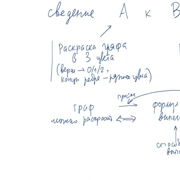 сведение A к B
Раскраска графа
в 3 цвета
(верш → 0/1/2
концы ребра – разные цвета)
прием
граф
можно раскрасить ⟺
форму
выпол
способ
выпо